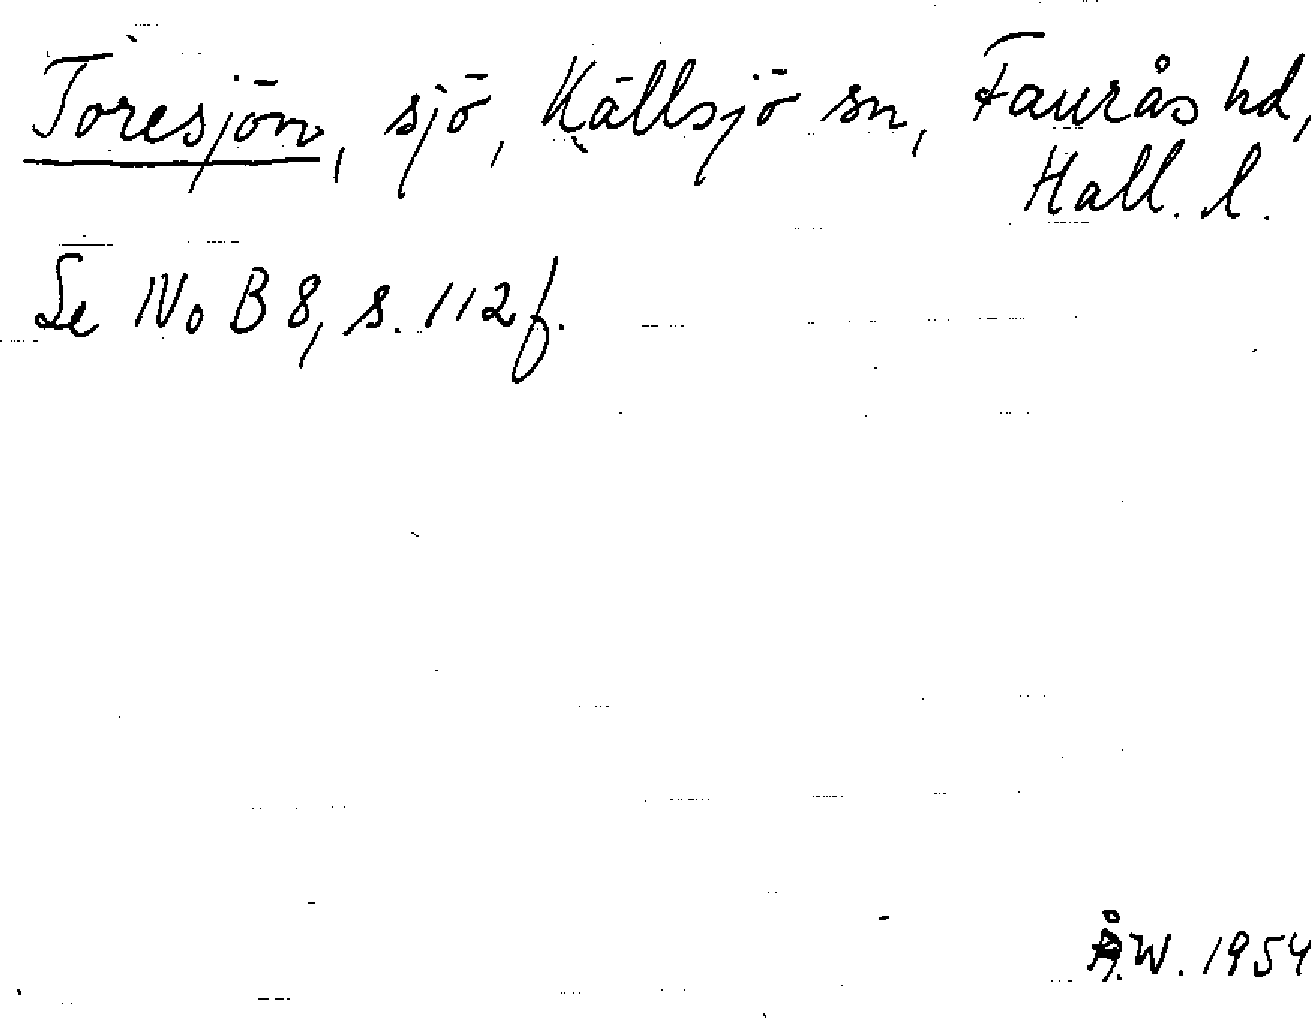 Toresjön, sjö, Källsjö sn, Faurås hd,
Hall. l.
Se NoB 8, s. 112 f.
Å.W. 1954